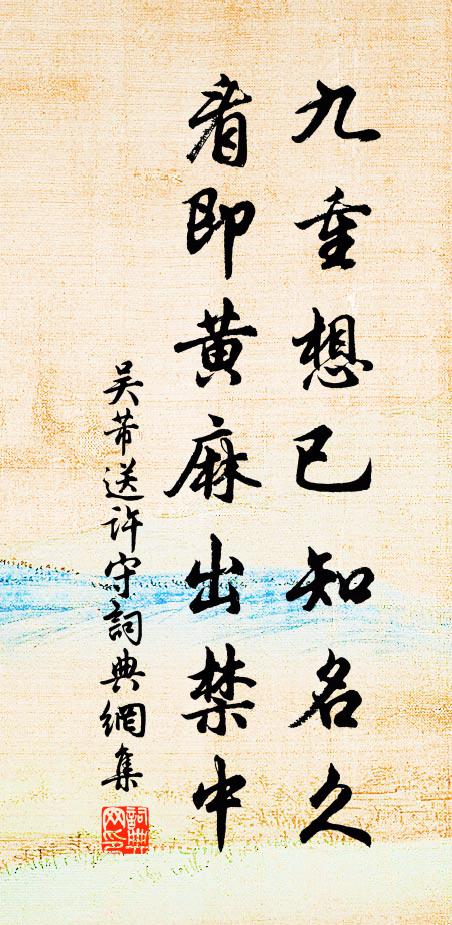 九重想已知名久
看即黄麻出禁中
吴芾送许守詞典網集
詞典网印